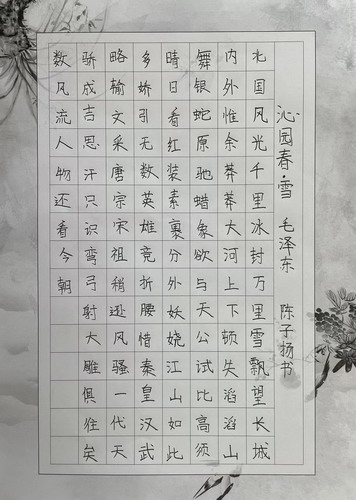 沁园春·雪 毛泽东 陈子扬书
北国风光千里冰封万里雪飘望长城
内外惟余莽莽大河上下顿失滔滔山
舞银蛇原驰蜡象欲与天公试比高须
晴日看红装素裹分外妖娆江山如此
多娇引无数英雄竞折腰惜秦皇汉武
略输文采唐宗宋祖稍逊风骚一代天
骄成吉思汗只识弯弓射大雕俱往矣
数风流人物还看今朝